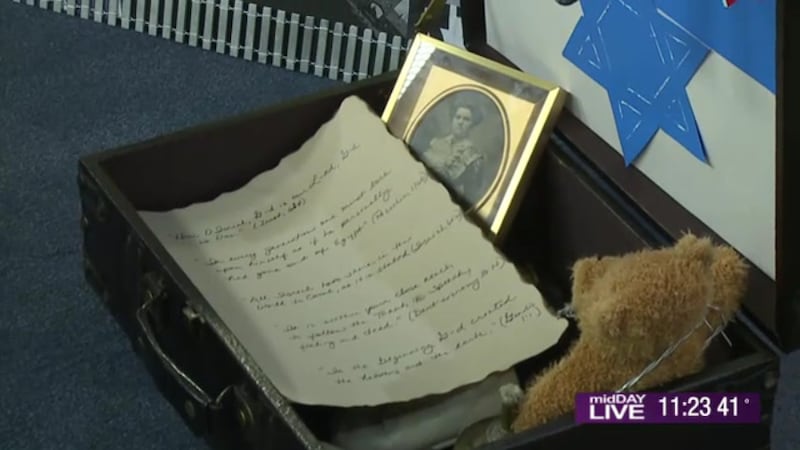 "Hear, O Israel, G-d is our L-rd, G-d
is One." (Deut. 6:4)
"In every generation one must look
upon himself as if he personally
had gone out of Egypt"
All Israel have share in the
World to Come, as it is stated (Isaiah
"It is within your close reach
to follow the Torah in speech,
feeling and deed." (Deuteronomy
"In the beginning G-d created
the heavens and the earth." (Gen. 1:1)
midDAY
LIVE 11:23 41°